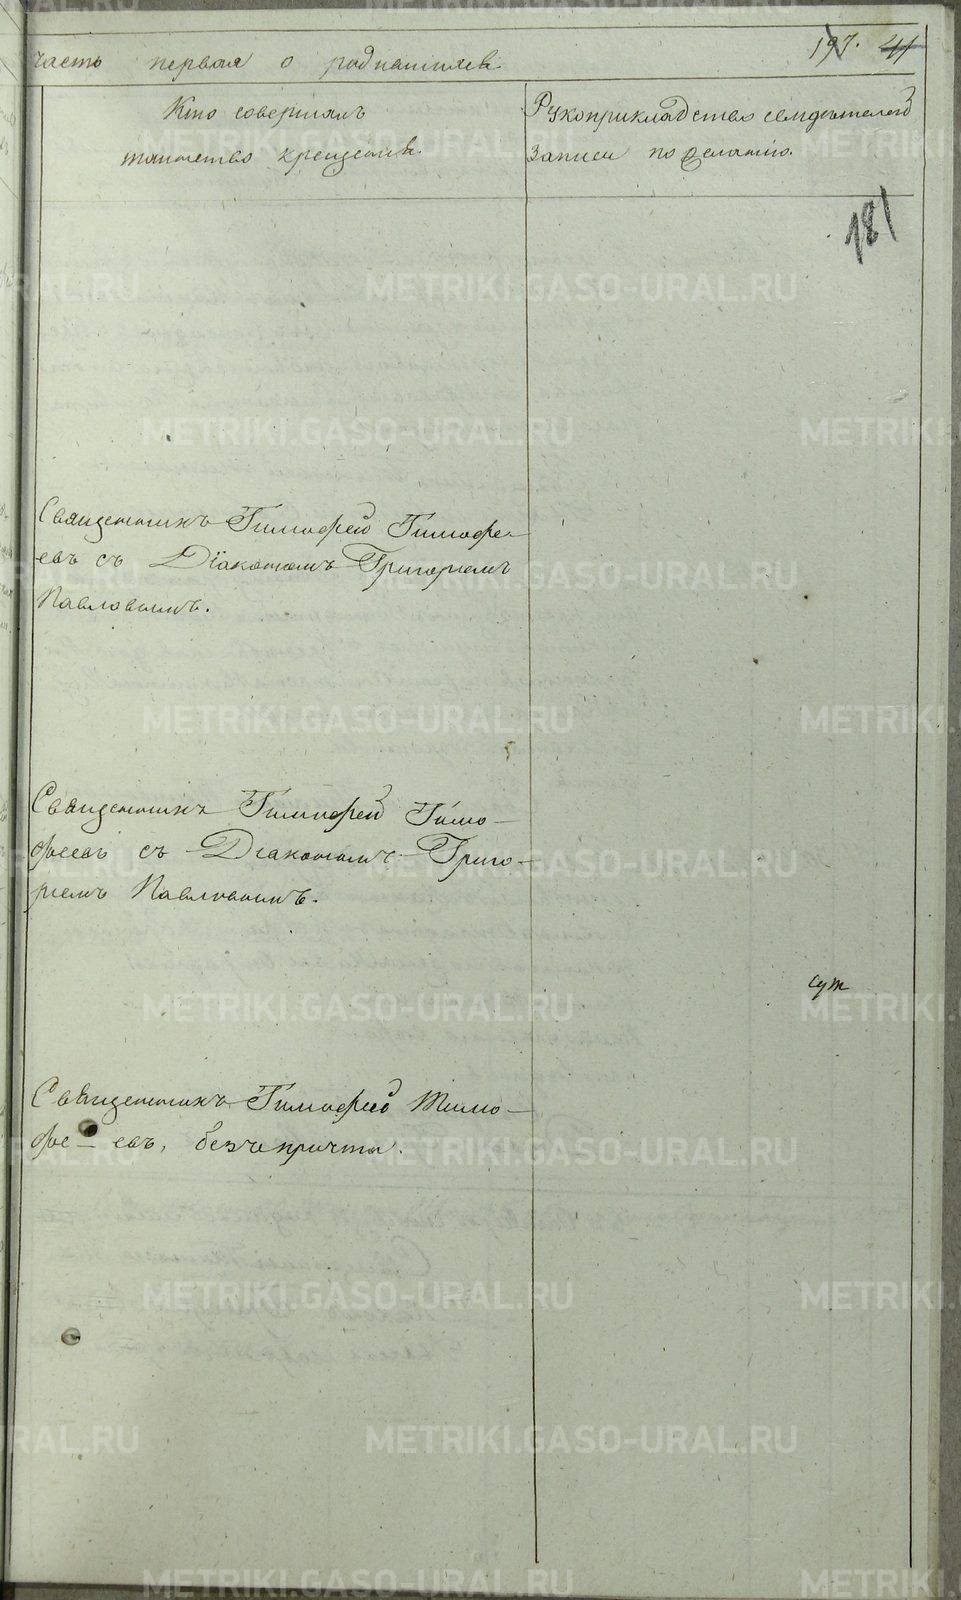 часть первая о родившихся. 197. 41
Кто совершалъ
таинство крещенія.
Рукоприкладство свидѣтелей
записи по желанію.
181
Священникъ Тимофей Тимофе-
евъ съ Діакономъ Григоріемъ
Павловымъ.
Священникъ Тимофей Тимо-
феевъ съ Діакономъ Григо-
ріемъ Павловымъ.
Священникъ Тимофей Тимо-
фе-евъ, безъ причта.
METRIKI.GASO-URAL.RU